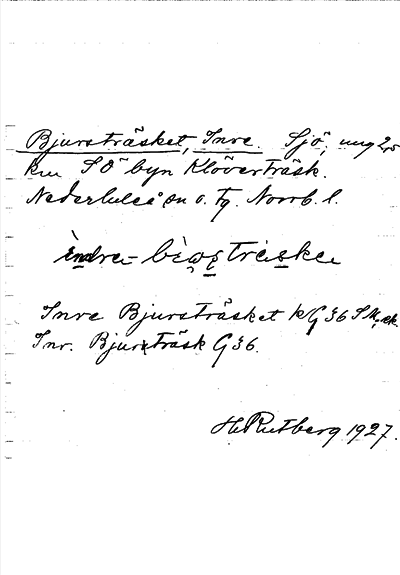 Bjursträsket, Inre. Sjö, ung 2,5
km SÖ byn Klöverträsk.
Nederluleå sn o. tg. Norrb. l.
Inre Bjursträsket k G36
Inr. Bjursträsk G36.
H Rutberg 1927.